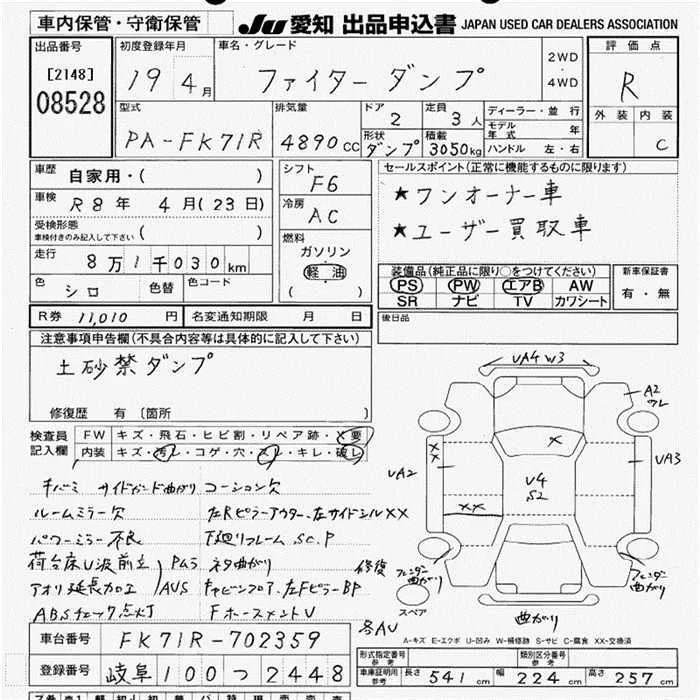 車内保管・守衛保管
JU 愛知 出品申込書 JAPAN USED CAR DEALERS ASSOCIATION
出品番号 [2148] 08528
初度登録年月 19 4月
車名・グレード ファイターダンプ
2WD・4WD
評価点 R
外装 内装 C
型式 PA-FK71R
排気量 4890cc
ドア 2
形状 ダンプ
定員 3人
積載 3050kg
ディーラー・並行
モデル年式 年
ハンドル 左・右
車歴 自家用・( )
車検 R8年 4月(23日)
受検形態 車検付きのみ記入して下さい ( )
走行 8万1千030km
色 シロ 色替 色コード
シフト F6
冷房 AC
燃料 ガソリン 軽油 ( )
セールスポイント(正常に機能するものに限ります)
★ワンオーナー車
★ユーザー買取車
装備品(純正品に限り○をつけてください)
PS PW エアB AW
SR ナビ TV カワシート
新車保証書 有・無
R券 11,010円 名変通知期限 月 日
後日品
注意事項申告欄(不具合内容等は具体的に記入して下さい)
土砂禁ダンプ
修復歴 有 〔箇所 〕
検査員記入欄
FW キズ・飛石・ヒビ割・リペア跡・X要
内装 キズ・汚レ・コゲ・穴・スレ・キレ・破レ
キバミ サイドガード曲がり コーション欠
ルームミラー欠 左Rピラーアウター、左サイドシルXX
パワーミラー不良 下廻りフレームSC.P
荷台床U波前立 PAS ネタ曲がり 修復
アオリ延長加工 AUS キャビンフロア、左FピラーBP
ABSチェック点灯 FホースメントU
各AU
UA4 W3
A2 ワレ
X
XX
UA2
U4 S2
UA3
XX
フェンダー曲がり
フェンダー曲がり
スペア
曲がり
A-キズ E-エクボ U-凹み W-補修跡 S-サビ C-腐食 XX-交換済
車台番号 FK71R-702359
登録番号 岐阜100つ2448
形式指定番号 参考
類別区分番号 参考
車庫証明用 参考 長さ 541cm 幅 224cm 高さ 257cm